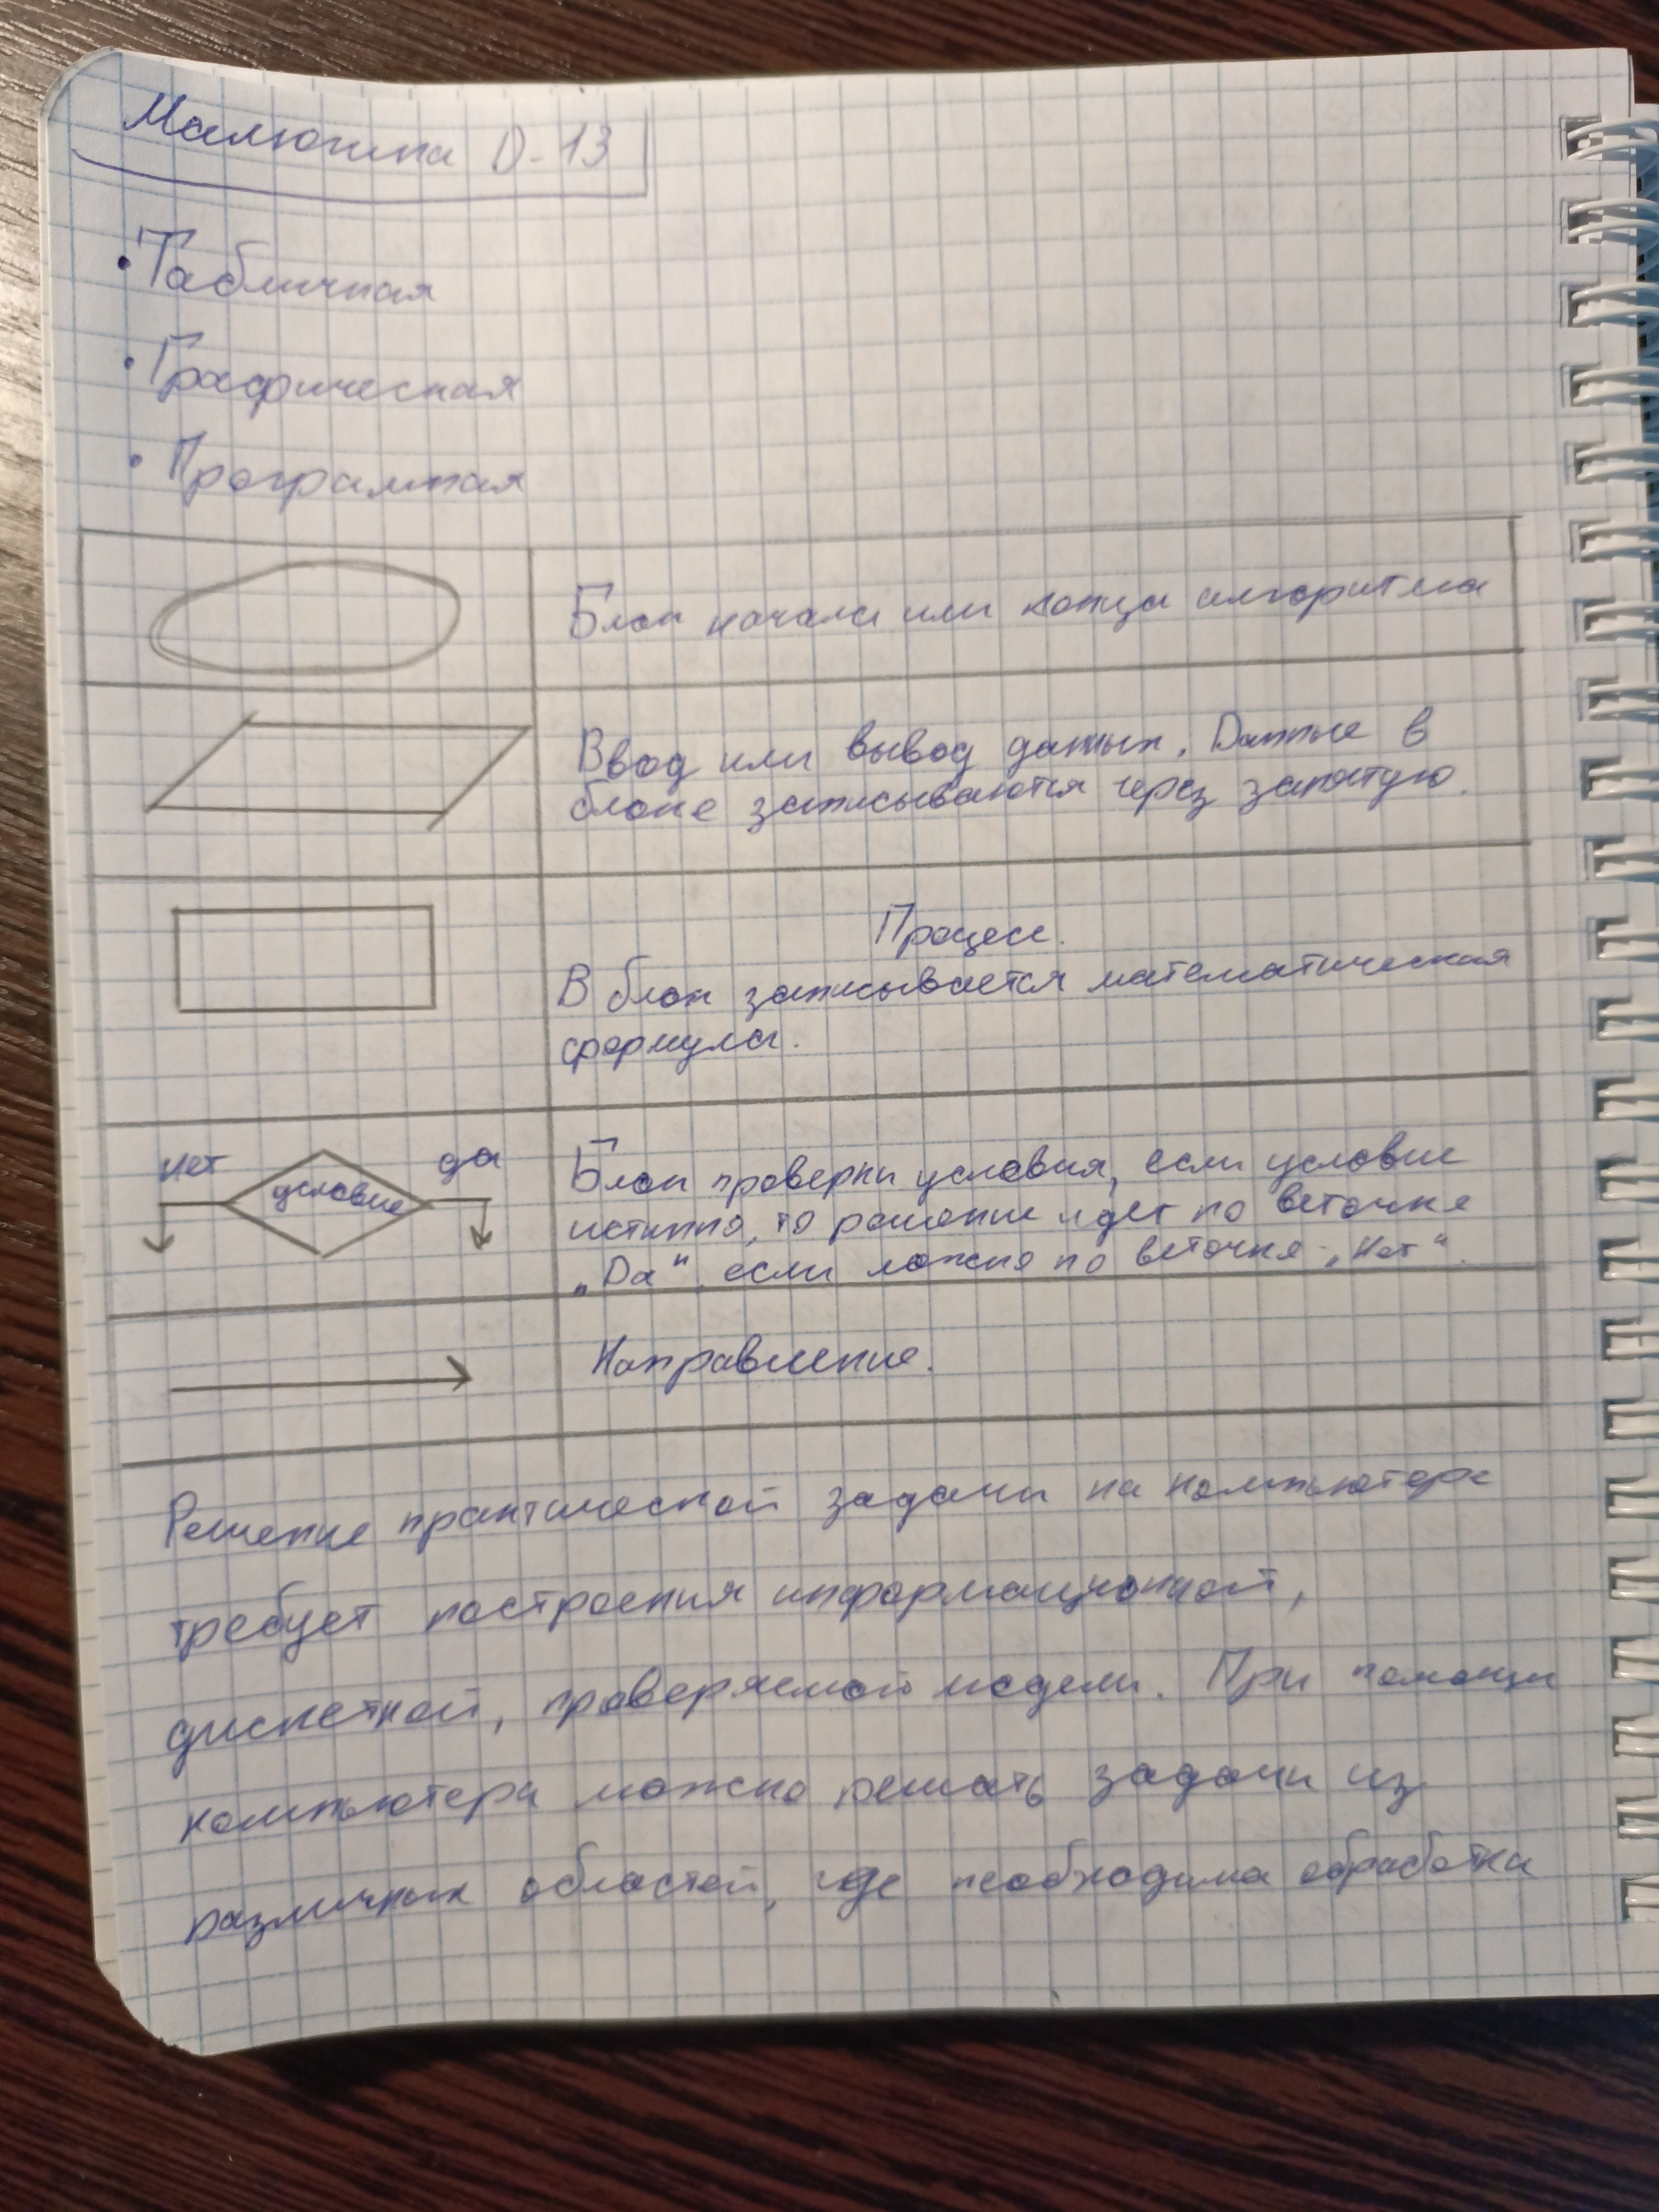 Малютина D-13
• Табличная
• Графическая
• Программная
Блок начала или конца алгоритма
Ввод или вывод данных. Данные в
блоке записываются через запятую.
Процесс.
В блок записывается математическая
формула.
нет
условие
да
Блок проверки условия, если условие
истинно, то решение идет по веточке
„Da“, если ложно по веточке - „Нет“.
Направление.
Решение практической задачи на компьютере
требует построения информационной,
дискетной, проверяемой модели. При помощи
компьютера можно решать задачи из
различных областей, где необходима обработка